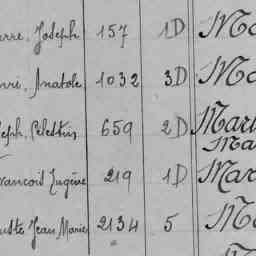 erre, Joseph 157 1D Ma
enri, Anatole 1032 3D Ma
seph, Célestin 659 2D Mart
Ma
François Eugène 219 1D Mar
uste Jean Marie 2134 5 Ma